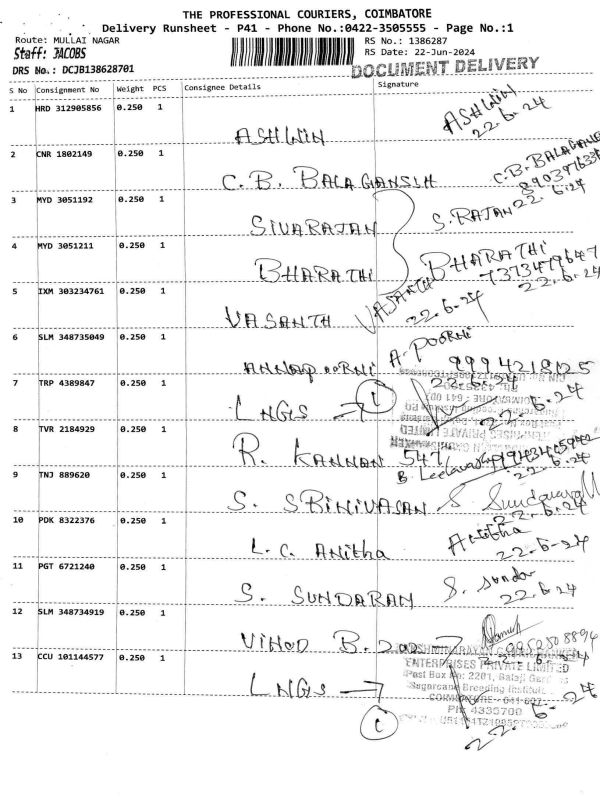 THE PROFESSIONAL COURIERS, COIMBATORE
Delivery Runsheet - P41 - Phone No.:0422-3505555 - Page No.:1
Route: MULLAI NAGAR RS No.: 1386287
Staff: JACOBS RS Date: 22-Jun-2024
DRS No.: DCJB138628701 DOCUMENT DELIVERY
S No Consignment No Weight PCS Consignee Details Signature
1 HRD 312905856 0.250 1
ASHWIN ASHWIN 22.6.24
2 CNR 1802149 0.250 1
C. B. BALAGANSLH
3 MYD 3051192 0.250 1
SIVARAJAN S. RAJAN 22.6.24
4 MYD 3051211 0.250 1
BHARATHI BHARATHI 7373479647 22.6.24
5 IXM 303234761 0.250 1
VASANTH VASANTH 22.6.24
6 SLM 348735049 0.250 1
ANNAPOORNI A. POORNI 9994218125 22.6.24
7 TRP 4389847 0.250 1
LNGS 1 22.6.24
8 TVR 2184929 0.250 1
R. KANNAN 547/ 22.6.24
9 TNJ 889620 0.250 1
S. SRINIVASAN 22.6.24
10 PDK 8322376 0.250 1
L. C. Anitha Anitha 22-6-24
11 PGT 6721240 0.250 1
S. SUNDARAM S. Sundar 22.6.24
12 SLM 348734919 0.250 1
VINOD B. 9952508894 22.6.24
13 CCU 101144577 0.250 1
ENTERPRISES PRIVATE LIMITED
Post Box No: 2201, Balaji
Sugarcane Breeding Institute
COIMBATORE - 641 007
PH: 4335700
LNGS 22.6-24